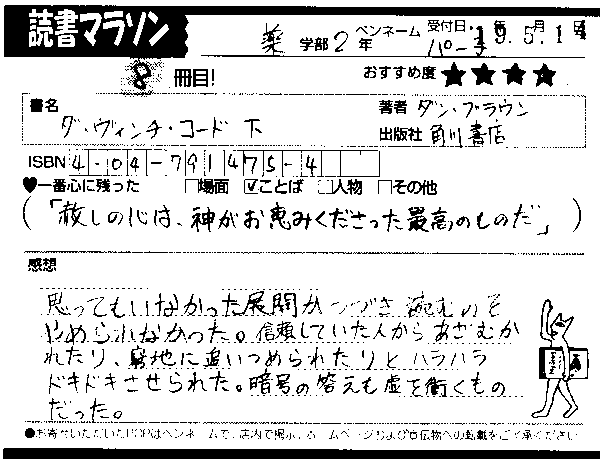 読書マラソン
薬 学部 2 年 ペンネーム 受付日 19.5.14
8 冊目! おすすめ度 ★★★★
書名 ダ・ヴィンチ・コード 下
著者 ダン・ブラウン
出版社 角川書店
ISBN 4-04-791475-4
♥一番心に残った □場面 ☑ことば □人物 □その他
(「赦しの心は、神がお恵みくださった最高のものだ」)
感想
思ってもいなかった展開がつづき読むのを
やめられなかった。信頼していた人からあざむか
れたり、窮地に追いつめられたりとハラハラ
ドキドキさせられた。暗号の答えも虚を衝くもの
だった。
●お寄せいただいたPOPはペンネームで、店内で掲示、ホームページおよび宣伝物への転載をご了承ください